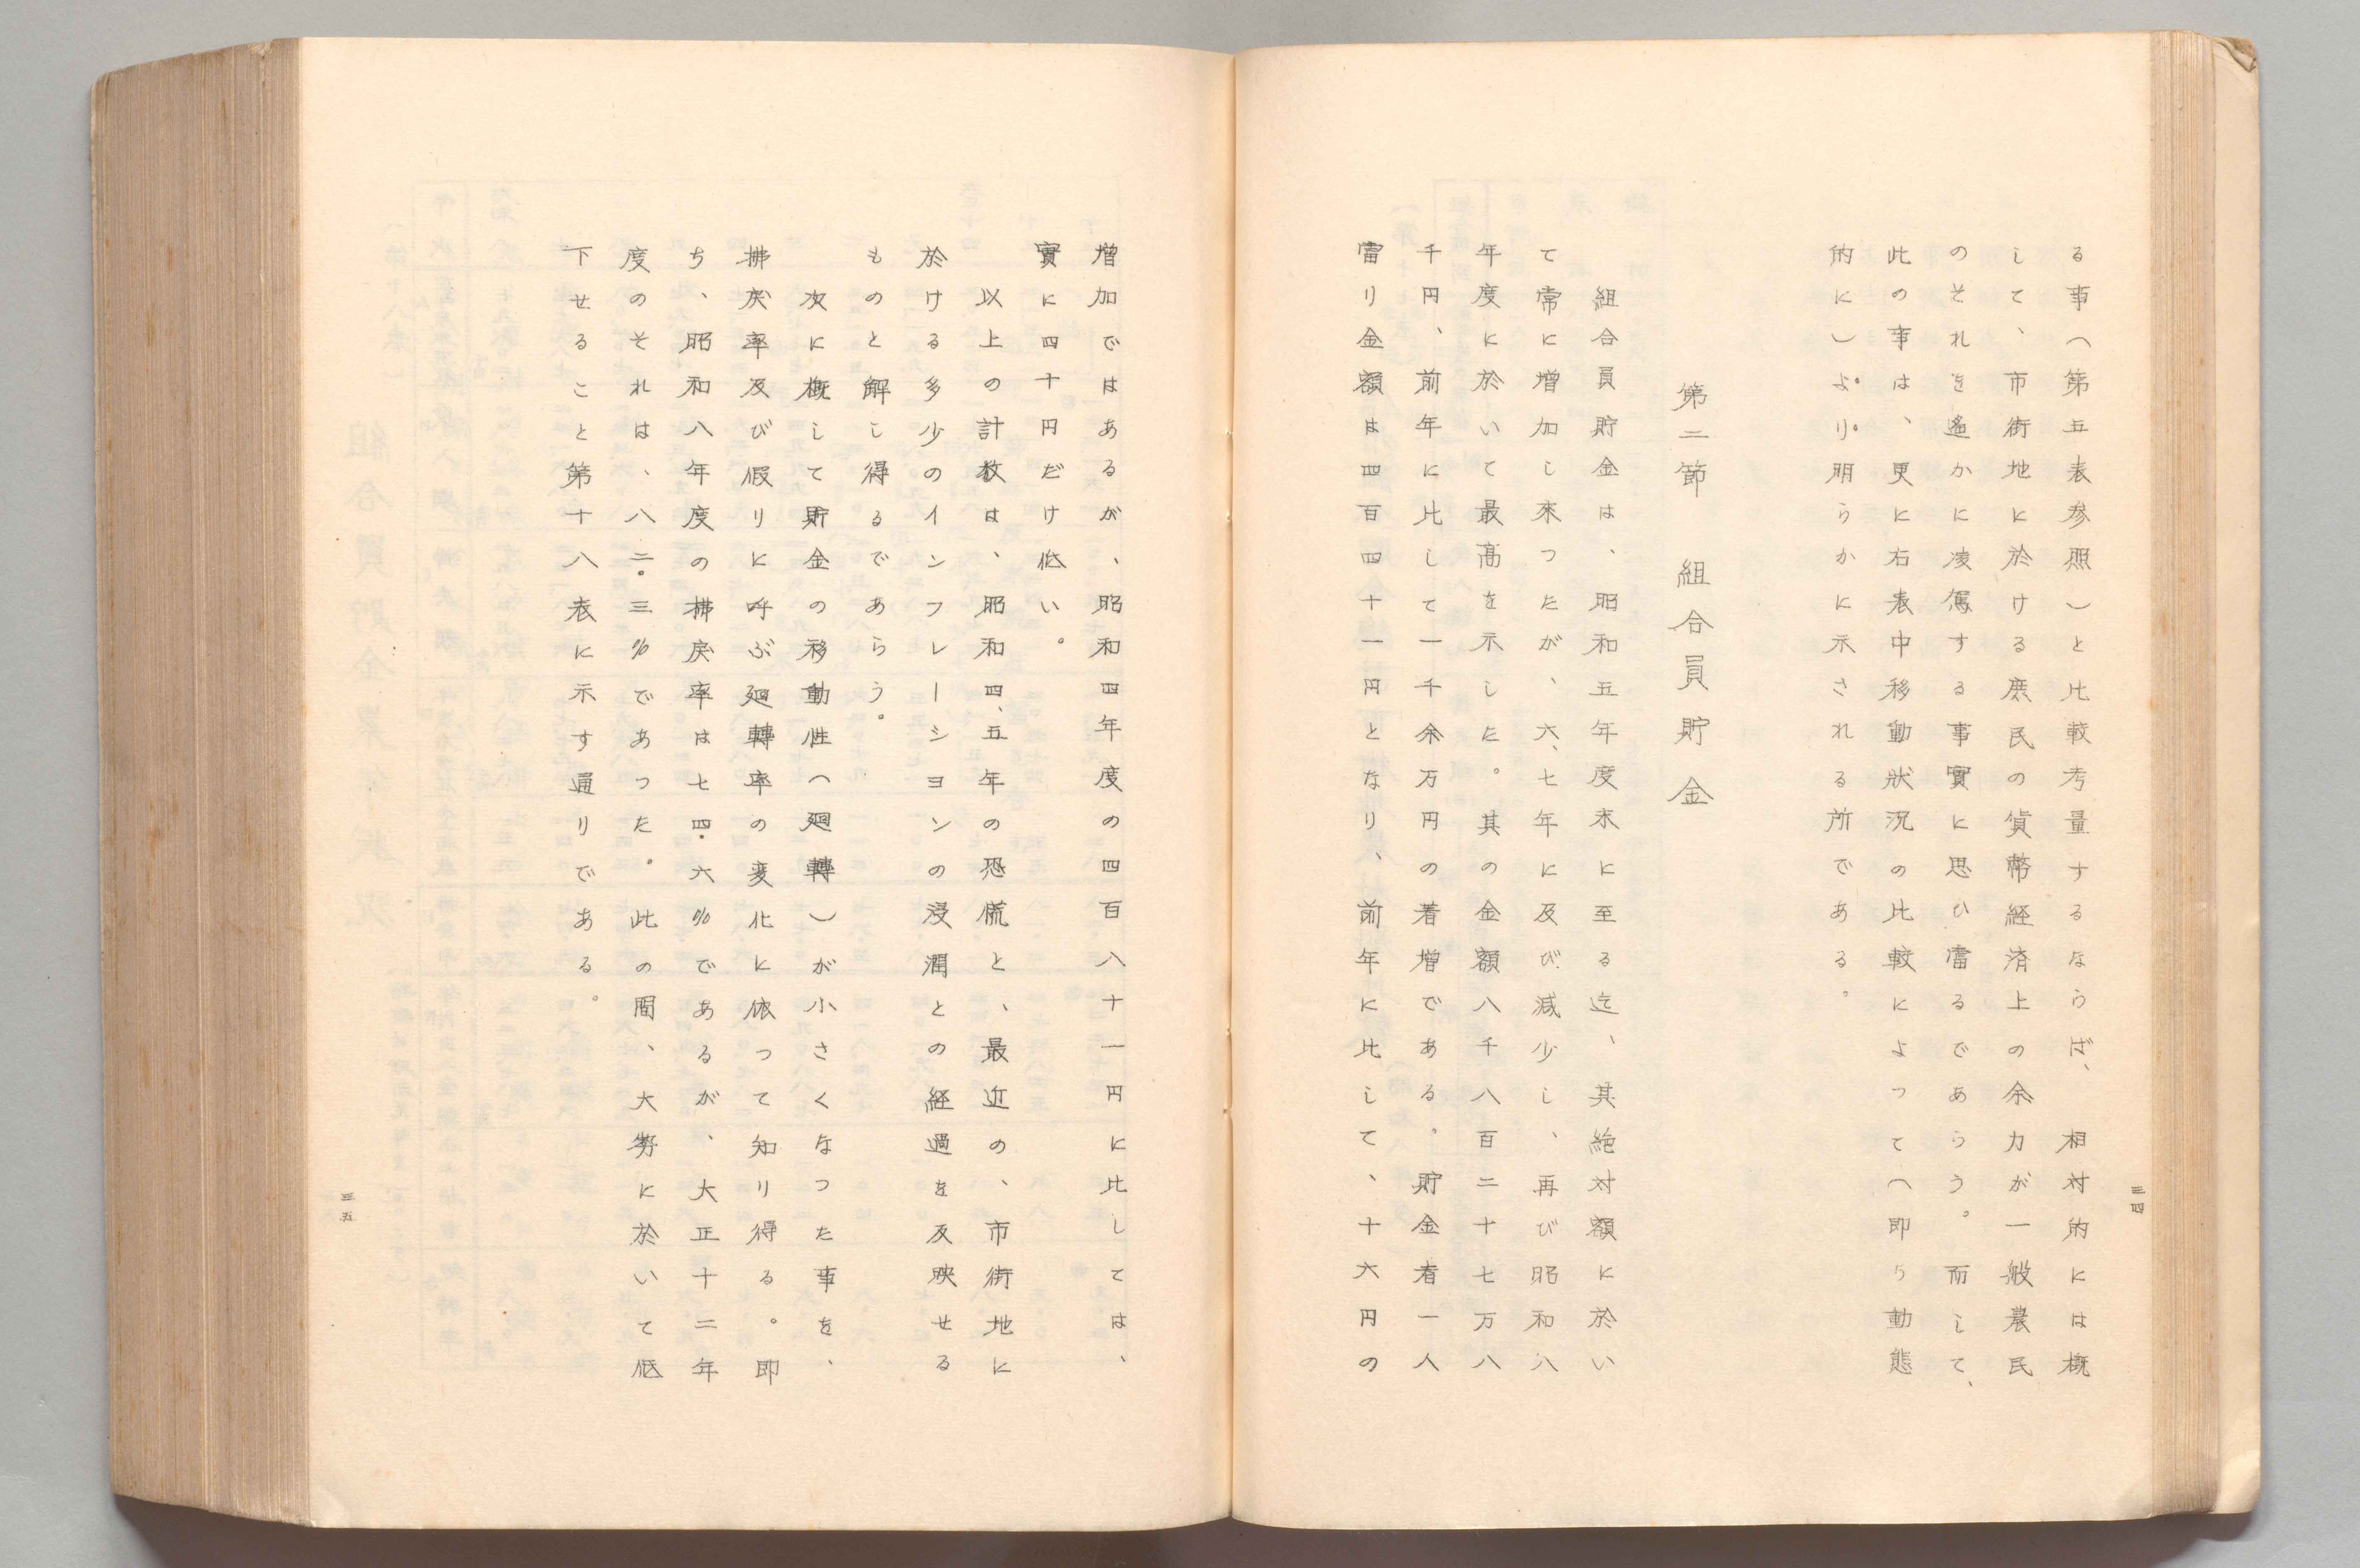 る事(第五表参照)と比較考量するならば、相対的には概
して、市街地に於ける庶民の貨幣経済上の余力が一般農民
のそれを遙かに凌駕する事實に思ひ當るであらう。而して、
此の事は、更に右表中移動状況の比較によって(即ち動態
的に)より明らかに示される所である。
第二節 組合員貯金
組合員貯金は、昭和五年度末に至る迄、其絶対額に於い
て常に増加し来つたが、六、七年に及び減少し、再び昭和八
年度に於いて最高を示した。其の金額八千八百二十七万八
千円、前年に比して一千余万円の著増である。貯金者一人
當り金額は四百四十一円となり、前年に比して、十六円の
三四
増加ではあるが、昭和四年度の四百八十一円に比しては、
實に四十円だけ低い。
以上の計数は、昭和四、五年の恐慌と、最近の、市街地に
於ける多少のインフレーシヨンの浸潤との経過を反映せる
ものと解し得るであらう。
次に概して貯金の移動性(廻轉)が小さくなつた事を、
拂戻率及び假りに呼ぶ廻轉率の変化に依つて知り得る。即
ち、昭和八年度の拂戻率は七四・六%であるが、大正十二年
度のそれは、八二・三%であつた。此の間、大勢に於いて低
下せること第十八表に示す通りである。
三五